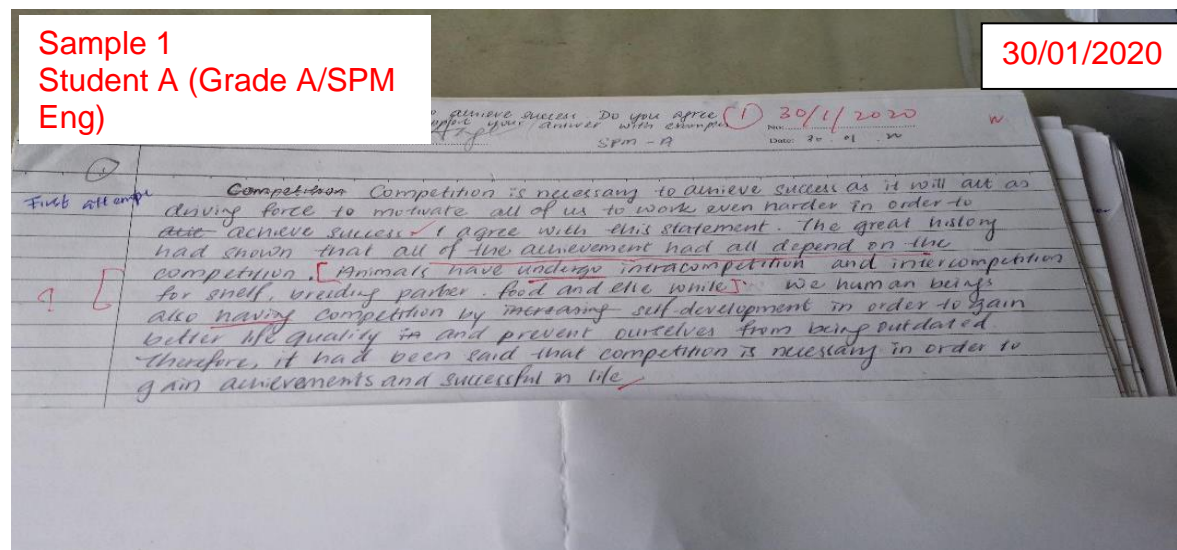 Sample 1
Student A (Grade A/SPM
Eng)
30/01/2020
achieve success Do you agree (1) 30/1/2020
your answer with
SPM - A Date: 30 . 01 . 20
First attempt
Competition Competition is necessary to achieve success as it will act as
driving force to motivate all of us to work even harder in order to
achieve success. I agree with this statement. The great history
had shown that all of the achievement had all depend on the
competition. [Animals have undergo intracompetition and intercompetition
? for shelf, breeding parber. food and else while] We human beings
also having competition by increasing self-development in order to gain
better life quality in and prevent ourselves from being outdated.
Therefore, it had been said that competition is necessary in order to
gain achievements and successful in life